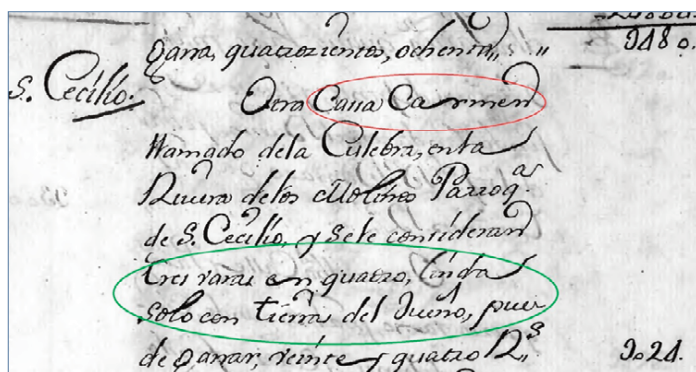 gana, quatrozientos, ochenta,, ,, U480.
S. Cecilio. Otra Cassa Carmen
llamado dela Culebra, enla
Rivera delos Molinos Parroq.ª
de S. Cecilio, y sele consideran
tres varas en quatro, linda
solo con tierra del Dueño, pue
de ganar, veinte y quatro R.s U024.